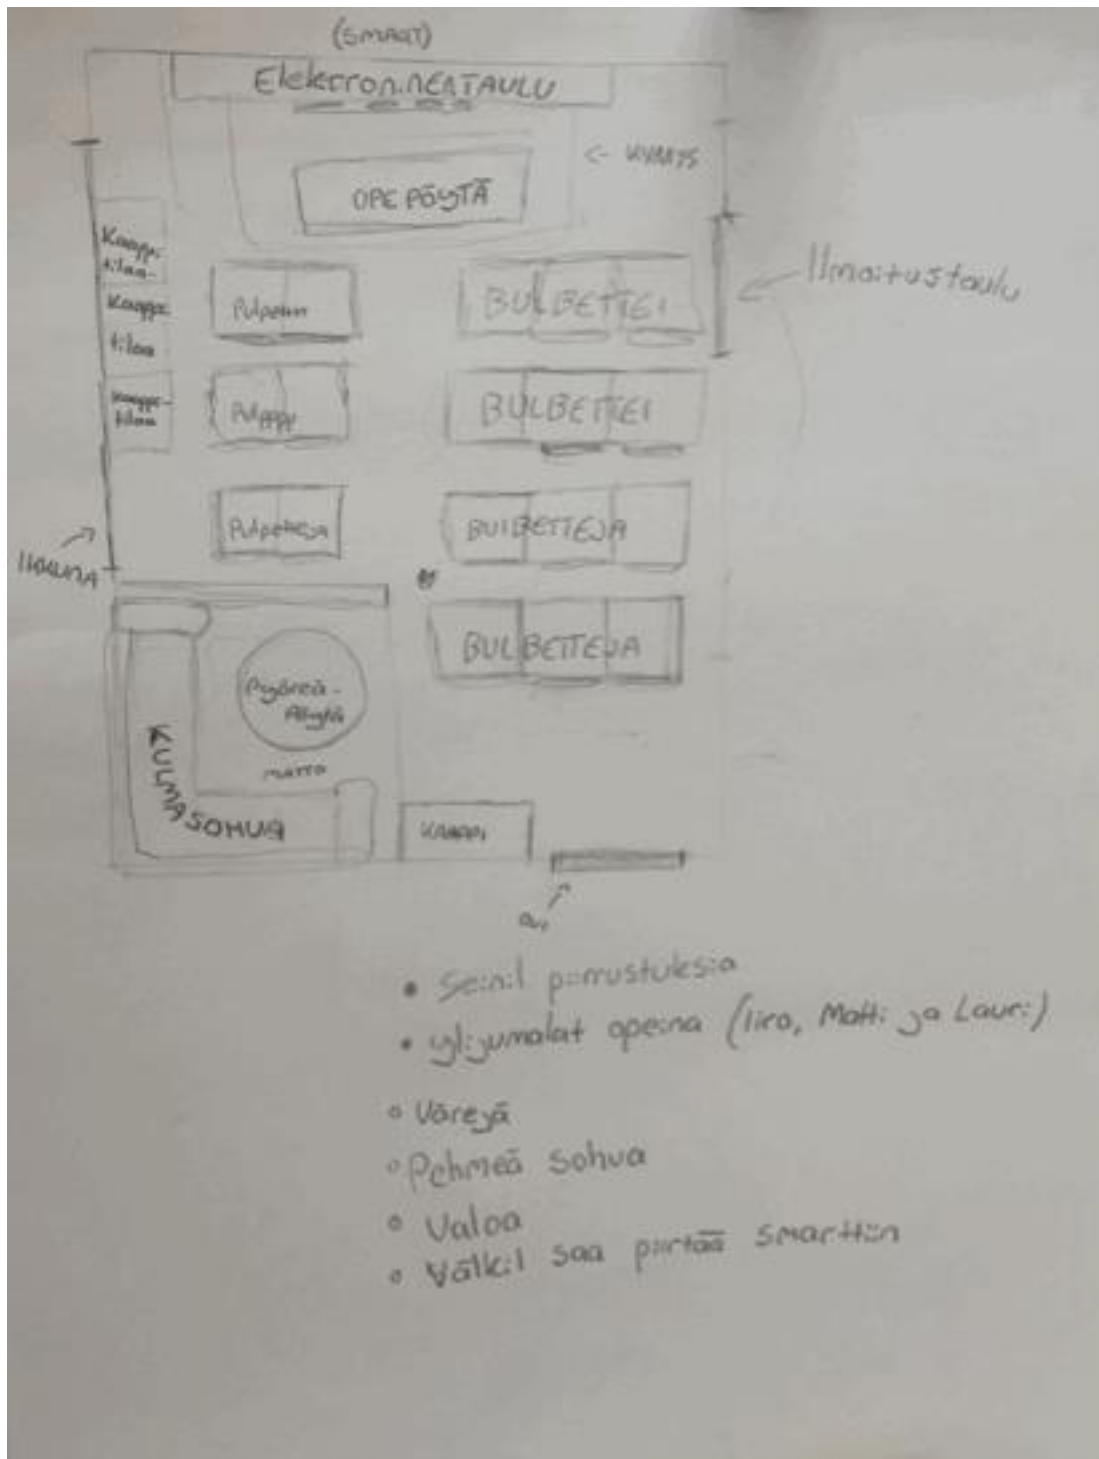 (SMART)
ElektroninenTAULU
<- KYNNYS
OPE PÖYTÄ
Kaappi-
tilaa-
Kaappi
tilaa
Kaappi-
tilaa
Ilmoitustaulu
BULBETTEI
Pulpppp
BULBETTEI
Pulpetteja
BUlBETTEJA
IKKUNA
BULBETTEJA
Pyöreä-
Pöytä
MATTO
KULMASOHVA
KAAPPI
Ovi
• Seinil piirrustuksia
• ylijumalat opeina (Iiro, Matti ja Lauri)
° Värejä
° Pehmeä sohva
° Valoa
° Välkil saa piirtää smarttiin